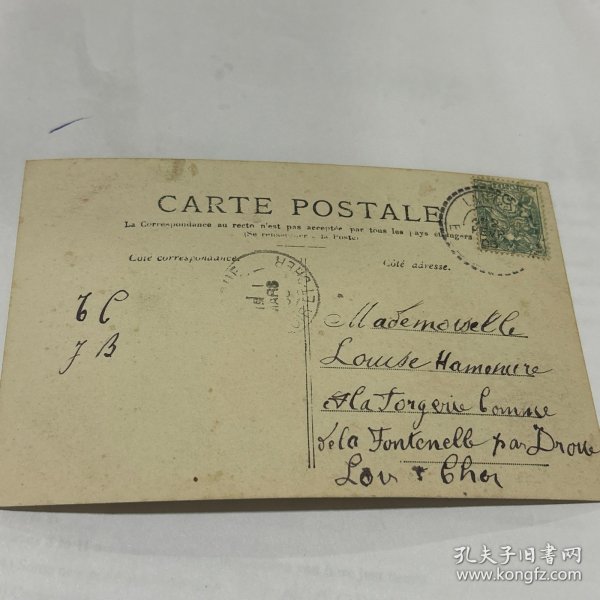 CARTE POSTALE
La Correspondance au recto n'est pas acceptée par tous les pays étrangers
(Se renseigner à la Poste)
Côté correspondance.
Côté adresse.
MARS
CHER
Mademoiselle
Louise Hamenire
a la Forgerie Comme
de la Fontenelle par Droue
Loir Cher
孔夫子旧书网
www.kongfz.com